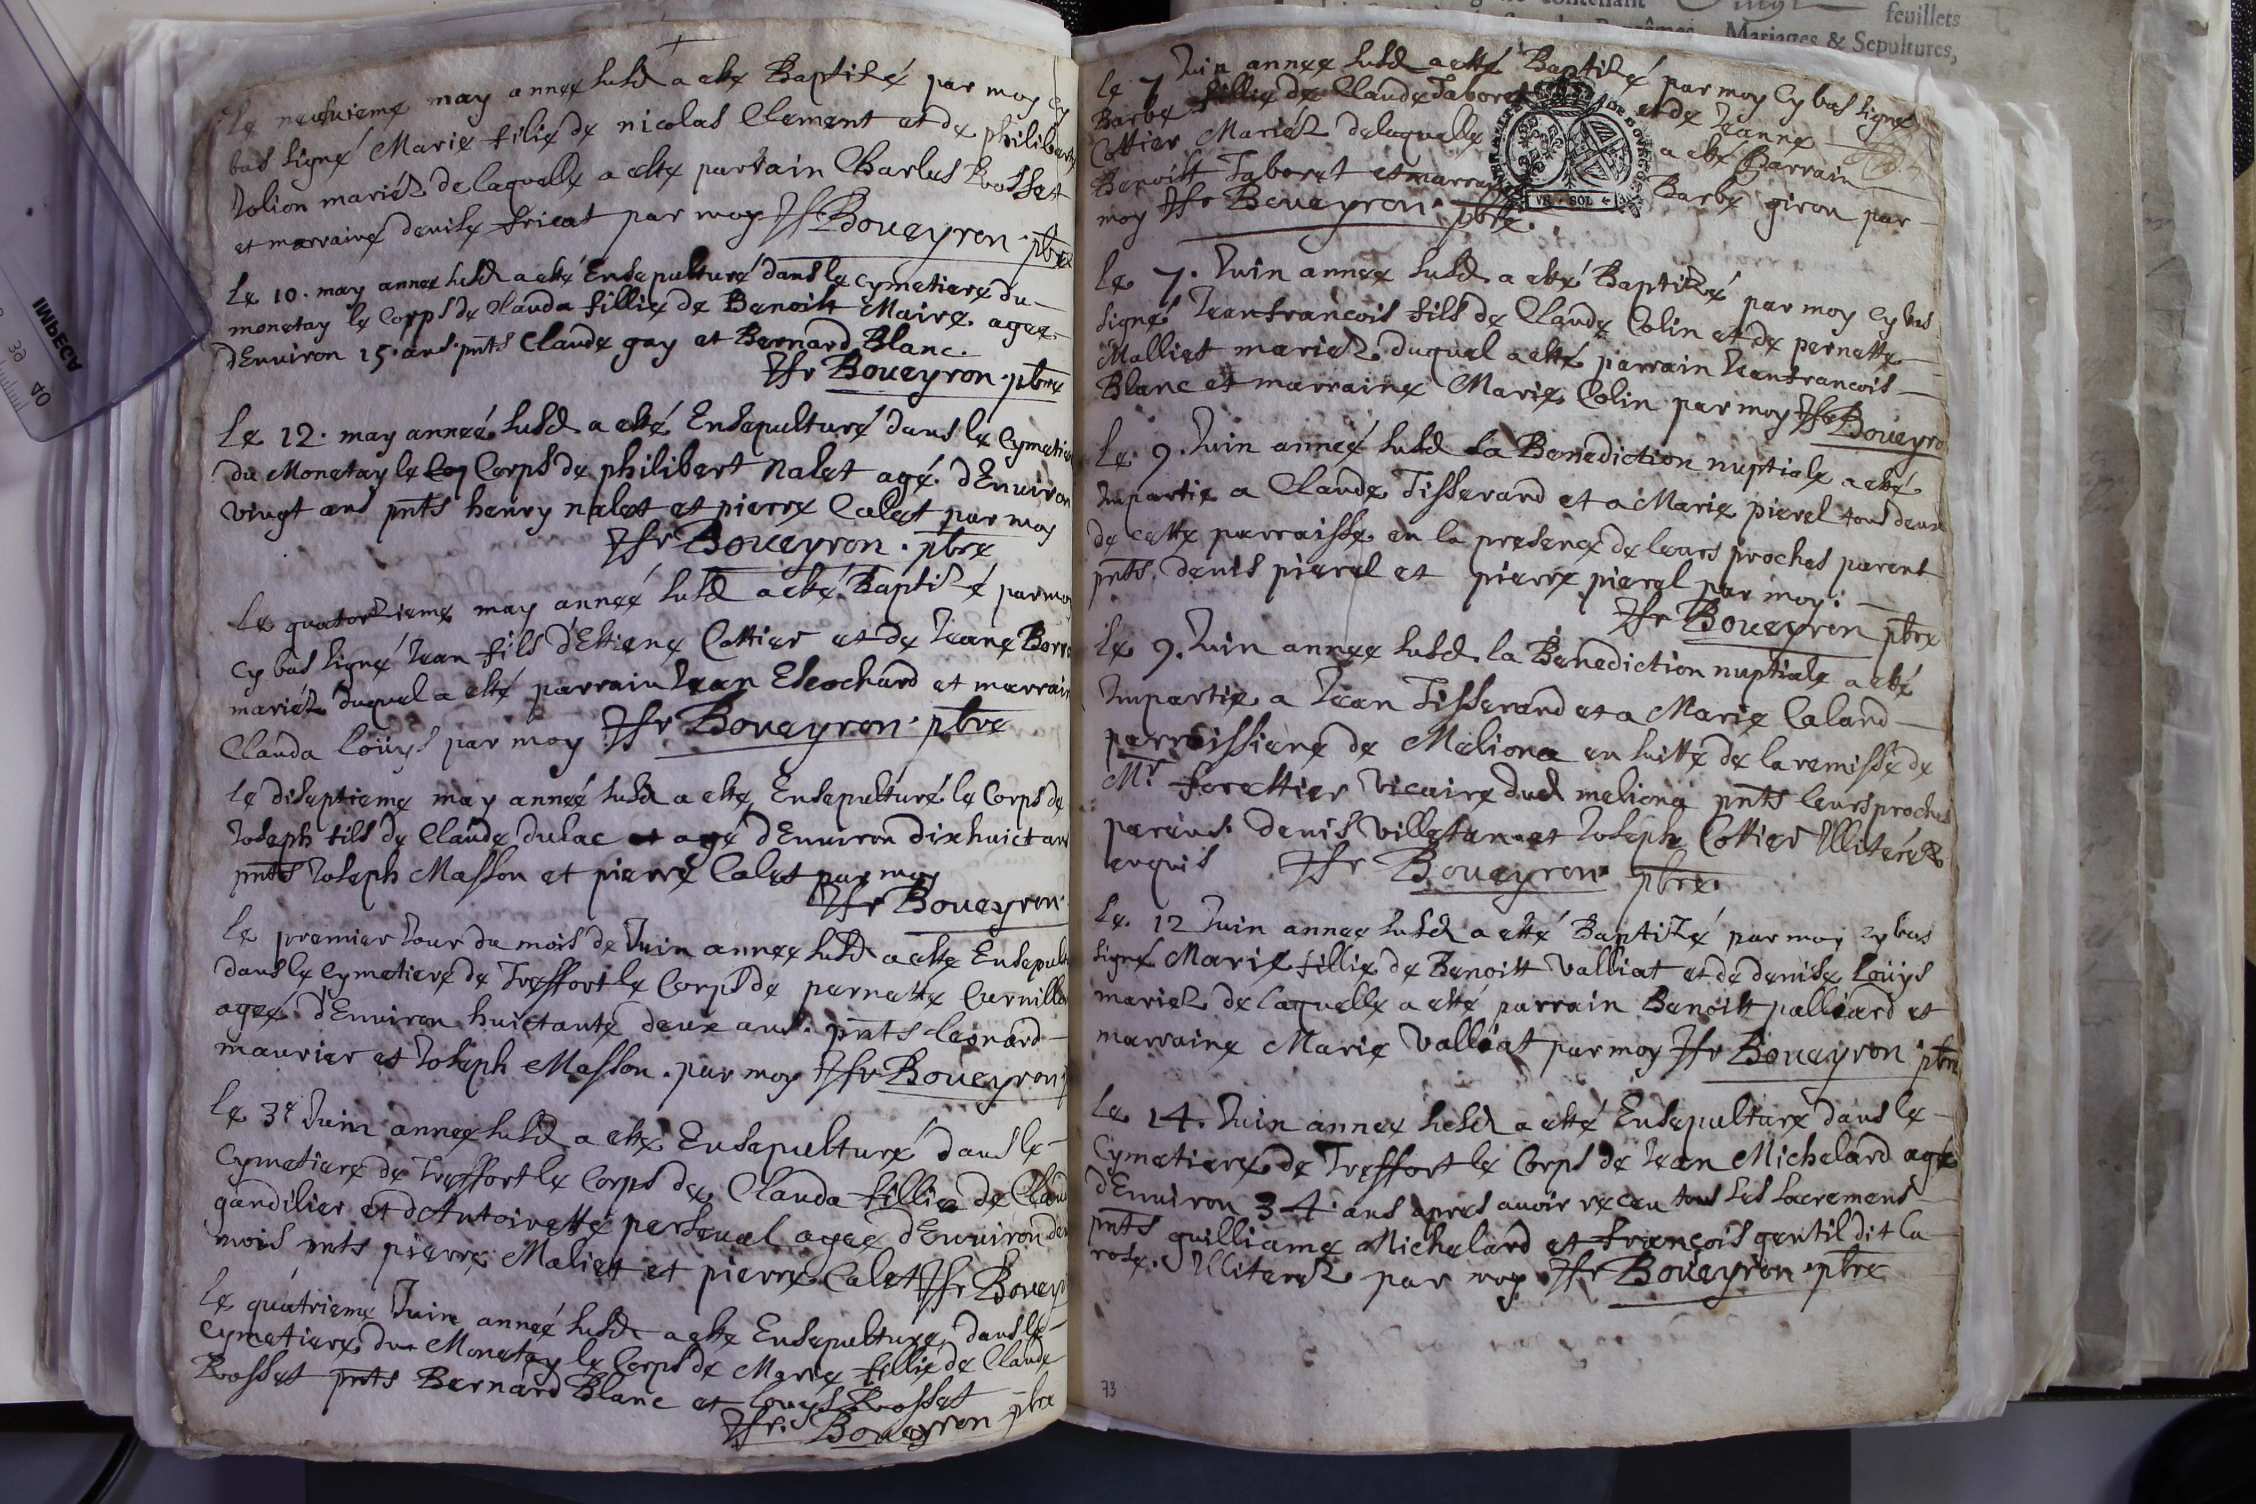 Le neufuieme may année susd a esté Baptizé par moy cy
bas signé Marie fillie de nicolas Clement et de philiberte
Jolion mariéz de laquelle a esté parrain Charles Rosset
et marraine denise fricat par moy Jfr Boueyron pbre
Le 10. may année susd a esté Ensepulturé dans le cymetiere du
monetay le Corps de Clauda fillie de Benoist Maire agee
d'Enuiron 15 ans pnts Claude gay et Bernard Blanc.
Jfr Boueyron pbre
Le 12. may année susd a esté Ensepulturé dans le Cymetie
du Monetay le Corps de philibert Nalet agé d'Enuiron
vingt ans pnts henry nalet et pierre Calet par moy
Jfr Boueyron. pbre
Le quatorzieme may année susd a esté Baptizé par moy
cy bas signé Jean fils d'Estiene Cottier et de Jeane Borr
mariéz duquel a esté parrain Jean Escochard et marrain
Clauda Loüys par moy Jfr Boueyron. pbre
Le diseptieme may année susd a esté Ensepulturé le Corps de
Joseph fils de Claude dulac et agé d'Enuiron dixhuict ans
pnts Joseph Masson et pierre Calet par moy
Jfr Boueyron.
Le premier Jour du mois de Juin année susd a esté Ensepult
dans le Cymetiere de Treffort le Corps de pernette Curnillo
ageé d'Enuiron huictante deux ans. pnts Leonard
maurier et Joseph Masson. par moy Jfr Boueyron
Le 3e Juin année susd a esté Ensepulturé dans le
Cymetiere de Treffort le Corps de Clauda fillie de Claud
gandilier et d'Antoinette perseual agee d'Enuiron deu
mois pnts pierre Maliet et pierre Calet Jfr Bouey
Le quatrieme Juin année susd a esté Ensepulturé dans le
Cymetiere du Monetay le Corps de Marie fillie de Claude
Rosset pnts Bernard Blanc et Louys Rosset
Jfr. Boueyron pbre
feuillets
Mariages & Sepultures,
Le 7 Juin année susd a esté Baptizé par moy Cy bas signé
Barbe fillie de Claude Taboret et de Jeanne
Cottier Mariéz de laquelle a esté Parrain
Benoist Taboret et marraine Barbe giron par
moy Jfr Boueyron. pbre.
VN SOL
Le 7. Juin année susd a esté Baptizé par moy cy bas
signé Jeanfrancois fils de Claude Colin et de pernette
Malliet mariez duquel a esté parrain Jeanfrancois
Blanc et marraine Marie Colin par moy Jfr Boueyro
Le 9. Juin année susd la Benediction nuptiale a esté
Impartie a Claude Tisserand et a Marie pierel tous deux
de cette parraisse en la presence de leurs proches parent
pnts. denis pierel et pierre pierel par moy.
Jfr Boueyron pbre
Le 9. Juin année susd. la Benediction nuptiale a esté
Impartie a Jean Tisserand et a Marie Caland
perroissiene de Meliona en suitte de la remisse de
Mr forettier vicaire dud meliona pnts leurs proches
parens. denis villetan et Joseph Cottier Illiteréz
enquis Jfr Boueyron. pbre.
Le. 12 Juin année susd a esté Baptizé par moy cy bas
signé Marie fillie de Benoist Valliat et de denise Loüys
mariez de laquelle a esté parrain Benoist palliard et
marraine Marie Valliat par moy Jfr Boueyron. pbre
Le 14. Juin année susd a esté Ensepulturé dans le
Cymetiere de Treffort le Corps de Jean Michelard agé
d'Enuiron 34 ans apres auoir receu tous ses sacremens
pnts guilliame Michelard et françois gentil dit la
rose. Illiteréz par moy Jfr Boueyron. pbre
73